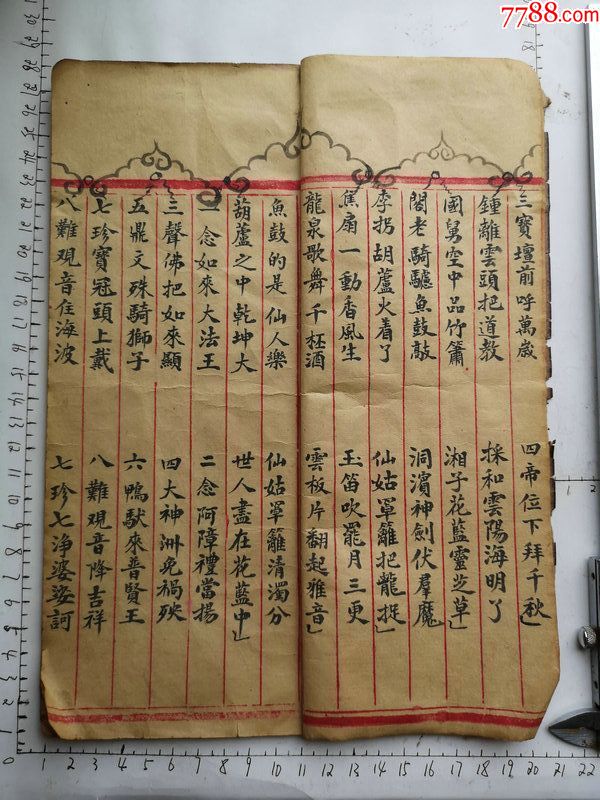 7788.com
三寶壇前呼萬歲 四帝位下拜千秋
鍾離雲頭把道教 採和雲陽海明了
國舅空中品竹簫 湘子花藍靈芝草
閻老騎驢魚鼓敲 洞濱神劍伏羣魔
李拐胡蘆火着了 仙姑笊籬把龍捉
焦扇一動香風生 玉笛吹罷月三更
龍泉歌舞千杯酒 雲板片翻起雅音
魚鼓的是仙人樂 仙姑笊籬清濁分
葫蘆之中乾坤大 世人盡在花藍中
一念如來大法王 二念阿障禮當揚
三聲佛把如來顯 四大神洲免禍殃
五鼎文殊騎獅子 六鴨馱來普賢王
七珍寶冠頭上戴 八難觀音降吉祥
八難觀音住海波 七珍七净婆婆訶